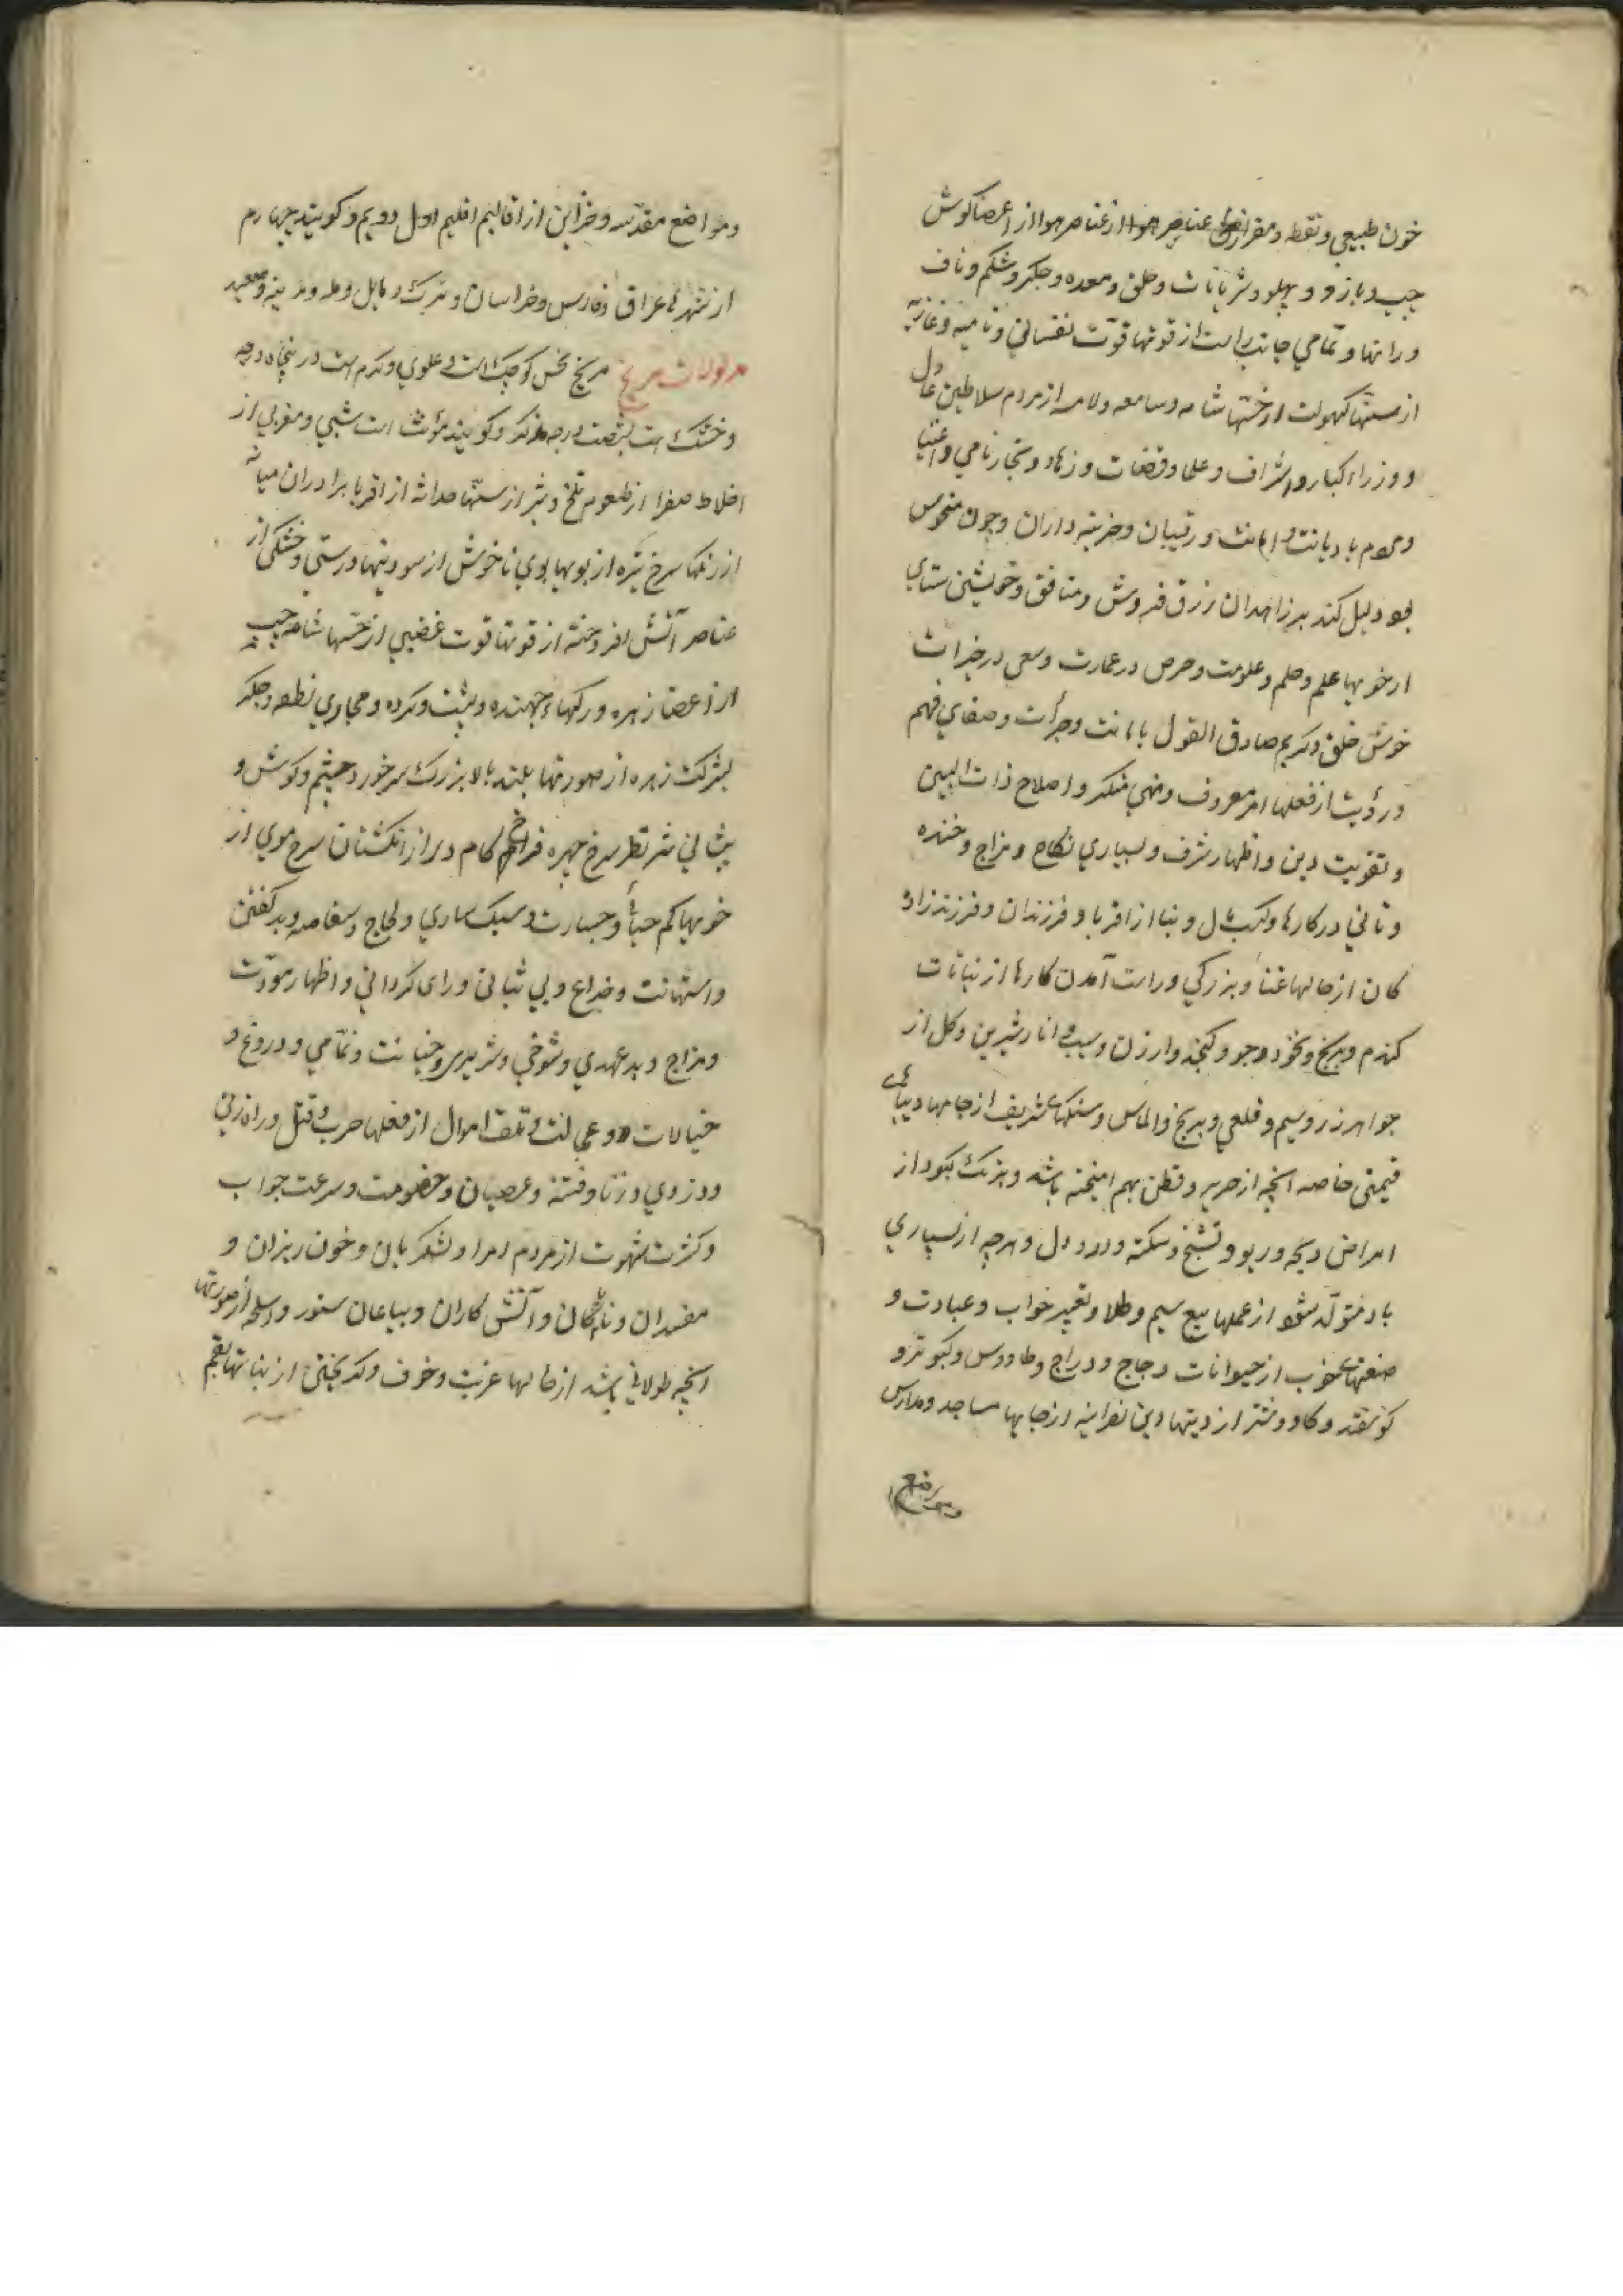 خون طبیعي و نطفه و مغز از عناصر هوا از اعضا کوش
جیب و بازو و پهلو و شریانات و حلق و معده و جکر و شکم و ناف
و رانها و تمامي جانب راست از قوتها قوّت نفساني و نامیه و غاذیه
از سنّها کهولت از حسّها شامه و سامعه و لامسه از مردم سلاطین عادل
و وزراء کبار و اشراف و علما و قضات و زهاد و تجار نامي و اغنیا
و مردم با دیانت و امانت و رقیبان و خزینه داران و چون منحوس
بود دلیل کند بر زاهدان زرق فروش و منافق و خویشتن ستاي
از خویها علم و حلم و علوّ همت و حرص در عمارت و سعی در خیرات
خوش خلق و کریم صادق القول با امانت و جرأت و صفاي فهم
و رؤیت از فعلها امر معروف و نهي منکر و اصلاح ذات البین
و تقویت دین و اظهار شرف و بسیاري نکاح و مزاح و خنده
و تاني در کارها و کسب مال و بنا از اقربا و فرزندان و فرزند زاد
کان از حالها غنا و بزرکي و راست آمدن کارها از نباتات
کندم و برنج و نخود و جو و کنجد و ارزن و سیب و انار شیرین و کل از
جواهر زر و سیم و قلعي و برنج و الماس و سنکهای شریف از جامها دیباهای
قیمتی خاصه آنچه از حریر و قطن بهم امیخته باشد و برنک کبود از
امراض ذبحه و ربو و تشنج و سکته و درد دل و هرچه از بسیاري
باد متولّد شود از عملها بیع سیم و طلا و تعبیر خواب و عبادت و
صنعتهای خوب از حیوانات دجاج و دراج و طاووس و کبوتر و
کوسفند و کاو و شتر از دینها دین نصرانیه از جایها مساجد و مدارس
و مواضع
و مواضع مقدّسه و خزاین از اقالیم اقلیم اول دویم و کویند چهارم
از شهرها عراق و فارس و خراسان و ترک و بابل و مدینه و صعید
مدلولات مریخ مریخ نحس کوچک است و علوي و کرم است در پنجاه درجه
و خشک است بشصت درجه مذکر و کویند مؤنث است شبي و مغربي از
اخلاط صفرا از طعوم تلخ و تیز از سنّها حداثه از اقربا برادران میانه
از رنکها سرخ تیره از بویها بوي ناخوش از سودنیها درستي و خشکي از
عناصر آتش افروخته از قوتها قوت غضبي از حسّها شامه
از اعضا زهره و رکهاء جهنده و پشت و کرده و مجاري نطفه و جکر
بشرکت زهره از صورتها بلند بالا بزرک سر خورد چشم و کوش و
پیشاني تیز نظر سرخ چهره فراخ کام دراز انکشتان سرخ موي از
خویها کم حیا و جسارت و سبک ساري و لجاج و سفاهت و بد کفتن
و استهانت و خداع و بي ثباتي و رای کرداني و اظهار مودّت
و مزاح و بد عهدي و شوخي و شریري و خیانت و نمّامي و دروغ و
خیالات و عجالت و تلف اموال از فعلها حرب و قتل و راه زني
و دزدي و زنا و فتنه و عصیان و خصومت و سرعت جواب
و کثرت شهوت از مردم امرا و لشکریان و خون ریزان و
مفسدان و ناپاکان و آتش کاران و بیاعان ستور و اسلحه از صورتها
آنچه طولاني باشد از حالها غربت و خوف و بدبختي از نباتها بقم